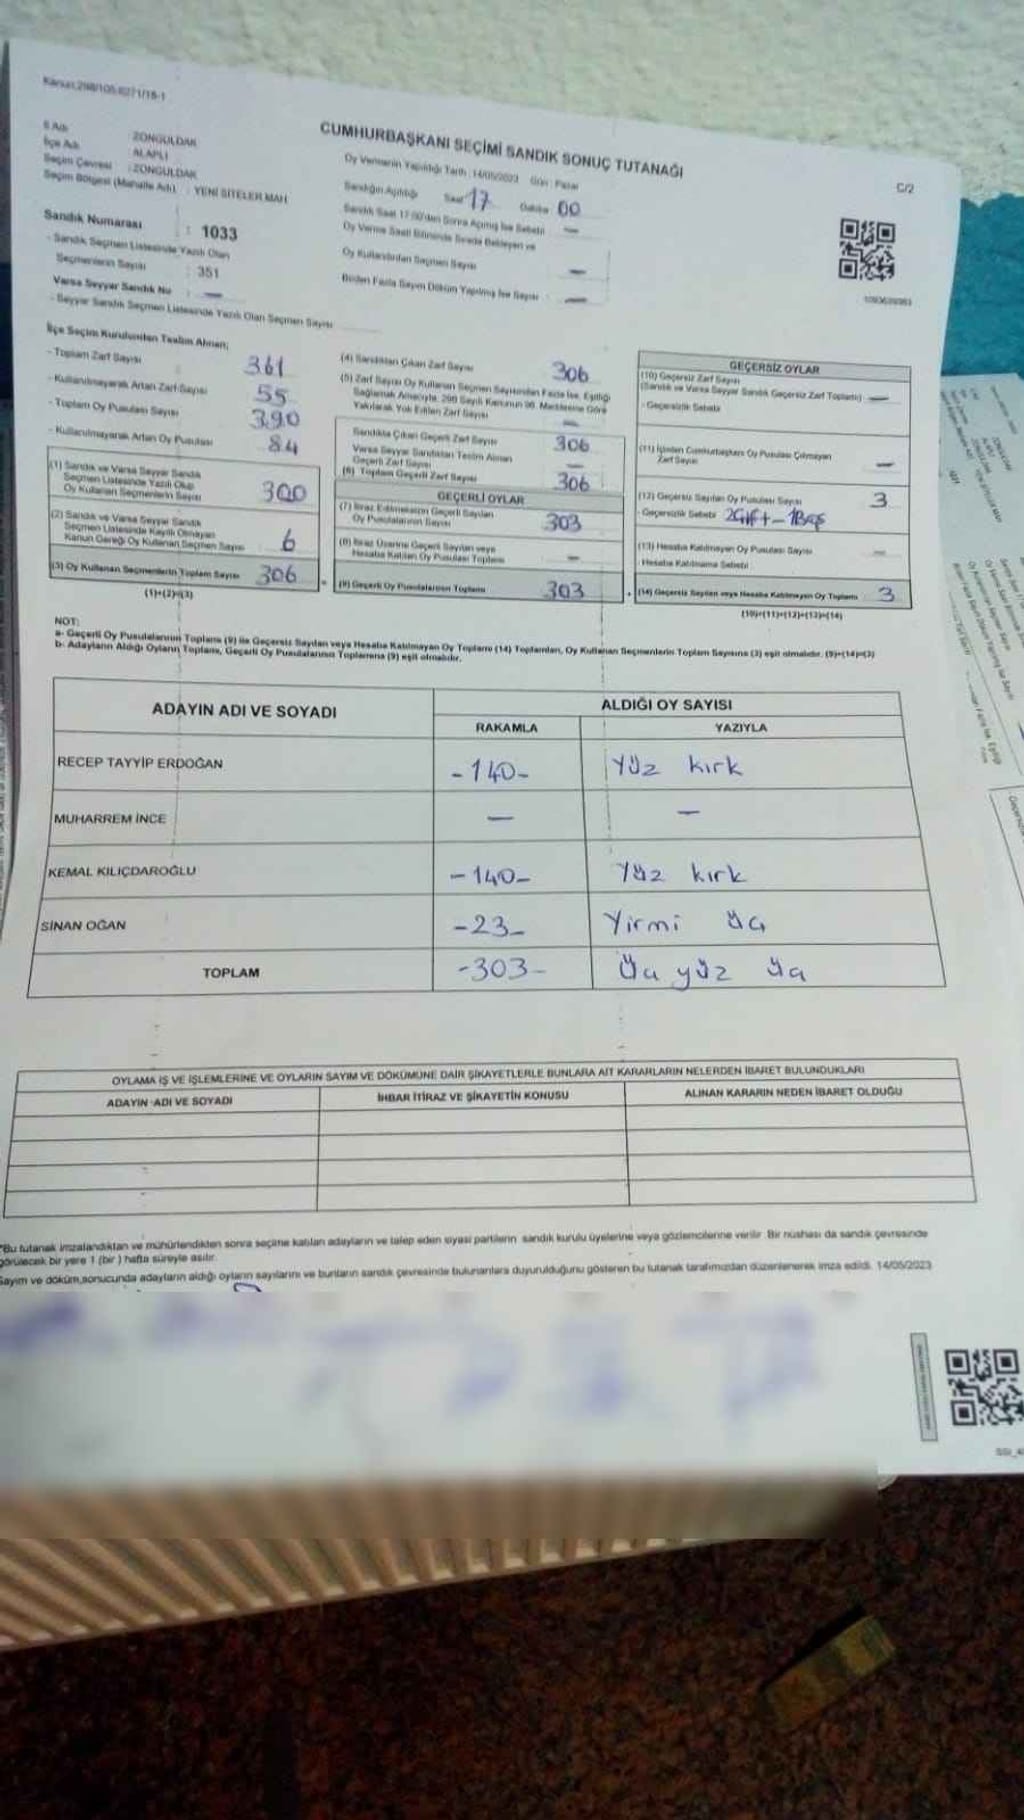 Kanun:298/105-6271/18-1
CUMHURBAŞKANI SEÇİMİ SANDIK SONUÇ TUTANAĞI
C/2
İl Adı : ZONGULDAK
İlçe Adı : ALAPLI
Seçim Çevresi : ZONGULDAK
Seçim Bölgesi (Mahalle Adı) : YENİ SİTELER MAH
Sandık Numarası : 1033
- Sandık Seçmen Listesinde Yazılı Olan
Seçmenlerin Sayısı : 351
Varsa Seyyar Sandık No : —
- Seyyar Sandık Seçmen Listesinde Yazılı Olan Seçmen Sayısı
Oy Vermenin Yapıldığı Tarih : 14/05/2023 Gün : Pazar
Sandığın Açıldığı Saat 17 Dakika 00
Sandık Saat 17.00'den Sonra Açılmış İse Sebebi —
Oy Verme Saati Bitiminde Sırada Bekleyen ve
Oy Kullandırılan Seçmen Sayısı —
Birden Fazla Sayım Döküm Yapılmış İse Sayısı : —
İlçe Seçim Kurulundan Teslim Alınan;
- Toplam Zarf Sayısı 361
- Kullanılmayarak Artan Zarf Sayısı 55
- Toplam Oy Pusulası Sayısı 390
- Kullanılmayarak Artan Oy Pusulası 84
(1) Sandık ve Varsa Seyyar Sandık
Seçmen Listesinde Yazılı Olup
Oy Kullanan Seçmenlerin Sayısı 300
(2) Sandık ve Varsa Seyyar Sandık
Seçmen Listesinde Kayıtlı Olmayan
Kanun Gereği Oy Kullanan Seçmen Sayısı 6
(3) Oy Kullanan Seçmenlerin Toplam Sayısı 306
(1)+(2)=(3)
(4) Sandıktan Çıkan Zarf Sayısı 306
(5) Zarf Sayısı Oy Kullanan Seçmen Sayısından Fazla İse, Eşitliği
Sağlamak Amacıyla, 298 Sayılı Kanunun 98. Maddesine Göre
Yakılarak Yok Edilen Zarf Sayısı —
Sandıkta Çıkan Geçerli Zarf Sayısı 306
Varsa Seyyar Sandıktan Teslim Alınan
Geçerli Zarf Sayısı —
(6) Toplam Geçerli Zarf Sayısı 306
GEÇERLİ OYLAR
(7) İtiraz Edilmeksizin Geçerli Sayılan
Oy Pusulalarının Sayısı 303
(8) İtiraz Üzerine Geçerli Sayılan veya
Hesaba Katılan Oy Pusulası Toplamı —
(9) Geçerli Oy Pusulalarının Toplamı 303
GEÇERSİZ OYLAR
(10) Geçersiz Zarf Sayısı
(Sandık ve Varsa Seyyar Sandık Geçersiz Zarf Toplamı) —
- Geçersizlik Sebebi
(11) İçinden Cumhurbaşkanı Oy Pusulası Çıkmayan
Zarf Sayısı —
(12) Geçersiz Sayılan Oy Pusulası Sayısı 3
- Geçersizlik Sebebi
(13) Hesaba Katılmayan Oy Pusulası Sayısı —
- Hesaba Katılmama Sebebi
(14) Geçersiz Sayılan veya Hesaba Katılmayan Oy Toplamı 3
(10)+(11)+(12)+(13)=(14)
NOT:
a- Geçerli Oy Pusulalarının Toplamı (9) ile Geçersiz Sayılan veya Hesaba Katılmayan Oy Toplamı (14) Toplamları, Oy Kullanan Seçmenlerin Toplam Sayısına (3) eşit olmalıdır. (9)+(14)=(3)
b- Adayların Aldığı Oyların Toplamı, Geçerli Oy Pusulalarının Toplamına (9) eşit olmalıdır.
ADAYIN ADI VE SOYADI
ALDIĞI OY SAYISI
RAKAMLA YAZIYLA
RECEP TAYYİP ERDOĞAN -140- Yüz kırk
MUHARREM İNCE — —
KEMAL KILIÇDAROĞLU -140- Yüz kırk
SİNAN OĞAN -23- Yirmi üç
TOPLAM -303- Üç yüz üç
OYLAMA İŞ VE İŞLEMLERİNE VE OYLARIN SAYIM VE DÖKÜMÜNE DAİR ŞİKAYETLERLE BUNLARA AİT KARARLARIN NELERDEN İBARET BULUNDUKLARI
ADAYIN ADI VE SOYADI İHBAR İTİRAZ VE ŞİKAYETİN KONUSU ALINAN KARARIN NEDEN İBARET OLDUĞU
*Bu tutanak imzalandıktan ve mühürlendikten sonra seçime katılan adayların ve talep eden siyasi partilerin sandık kurulu üyelerine veya gözlemcilerine verilir. Bir nüshası da sandık çevresinde
görülecek bir yere 1 (bir) hafta süreyle asılır.
Sayım ve döküm sonucunda adayların aldığı oyların sayılarını ve bunların sandık çevresinde bulunanlara duyurulduğunu gösteren bu tutanak tarafımızdan düzenlenerek imza edildi. 14/05/2023